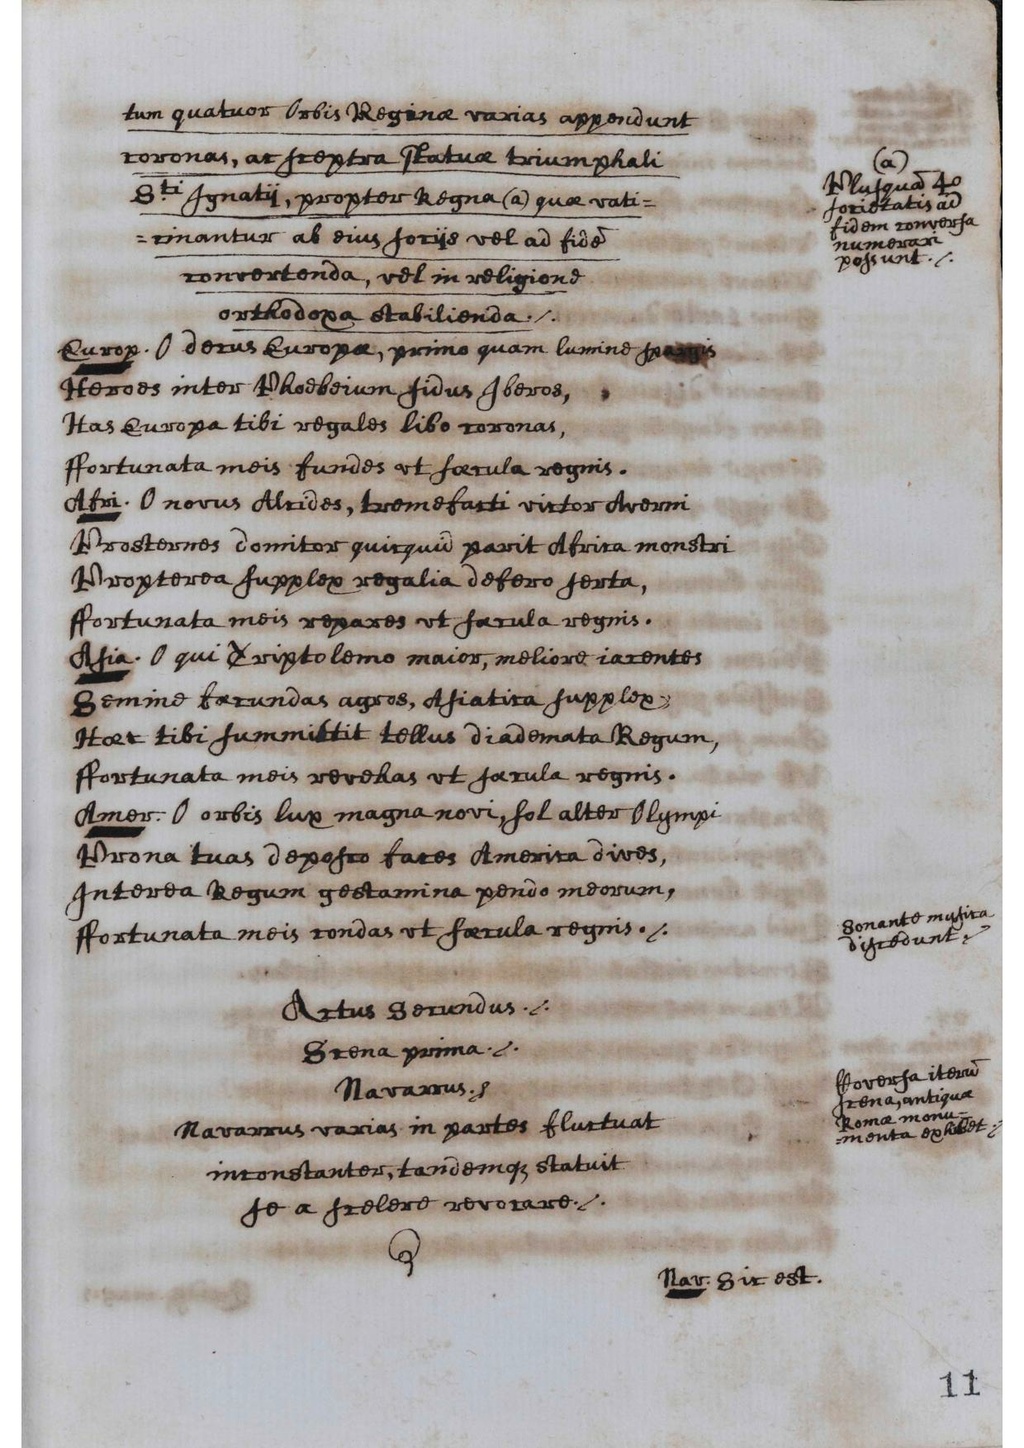 tum quatuor Orbis Reginæ varias appendunt
coronas, ac sceptra statuæ triumphali
S.ti Ignatij, propter Regna (a) quæ vati=
=cinantur ab eius socijs vel ad fidẽ
convertenda, vel in religione
orthodoxa stabilienda./.
(a)
Plusquã 40
societatis ad
fidem conversa
numerari
possunt./.
Europ. O decus Europæ, primo quam lumine spargis
Heroes inter Phoebeium sidus Iberos,
Has Europa tibi regales libo coronas,
ffortunata meis fundes vt sæcula regnis.
Afri. O novus Alcides, tremefacti victor Averni
Prosternes domitor quicquid parit Africa monstri
Propterea supplex regalia defero serta,
ffortunata meis repares vt sæcula regnis.
Asia. O qui Triptolemo maior, meliore iacentes
Semine fæcundas agros, Asiatica supplex
Hæc tibi summittit tellus diademata Regum,
ffortunata meis revehas vt sæcula regnis.
Amer. O orbis lux magna novi, sol alter Olympi
Prona tuas deposco faces America dives,
Interea Regum gestamina pendo meorum,
ffortunata meis condas vt sæcula regnis./.
Sonante musica
discedunt./.
Actus Secundus./.
Scena prima./.
Navarrus./
Navarrus varias in partes fluctuat
inconstanter, tandemq; statuit
se a scelere revocare./.
Eversa iterũ
scena, antiquæ
Romæ monu=
=menta exhibet./.
Nav. Sic est.
11